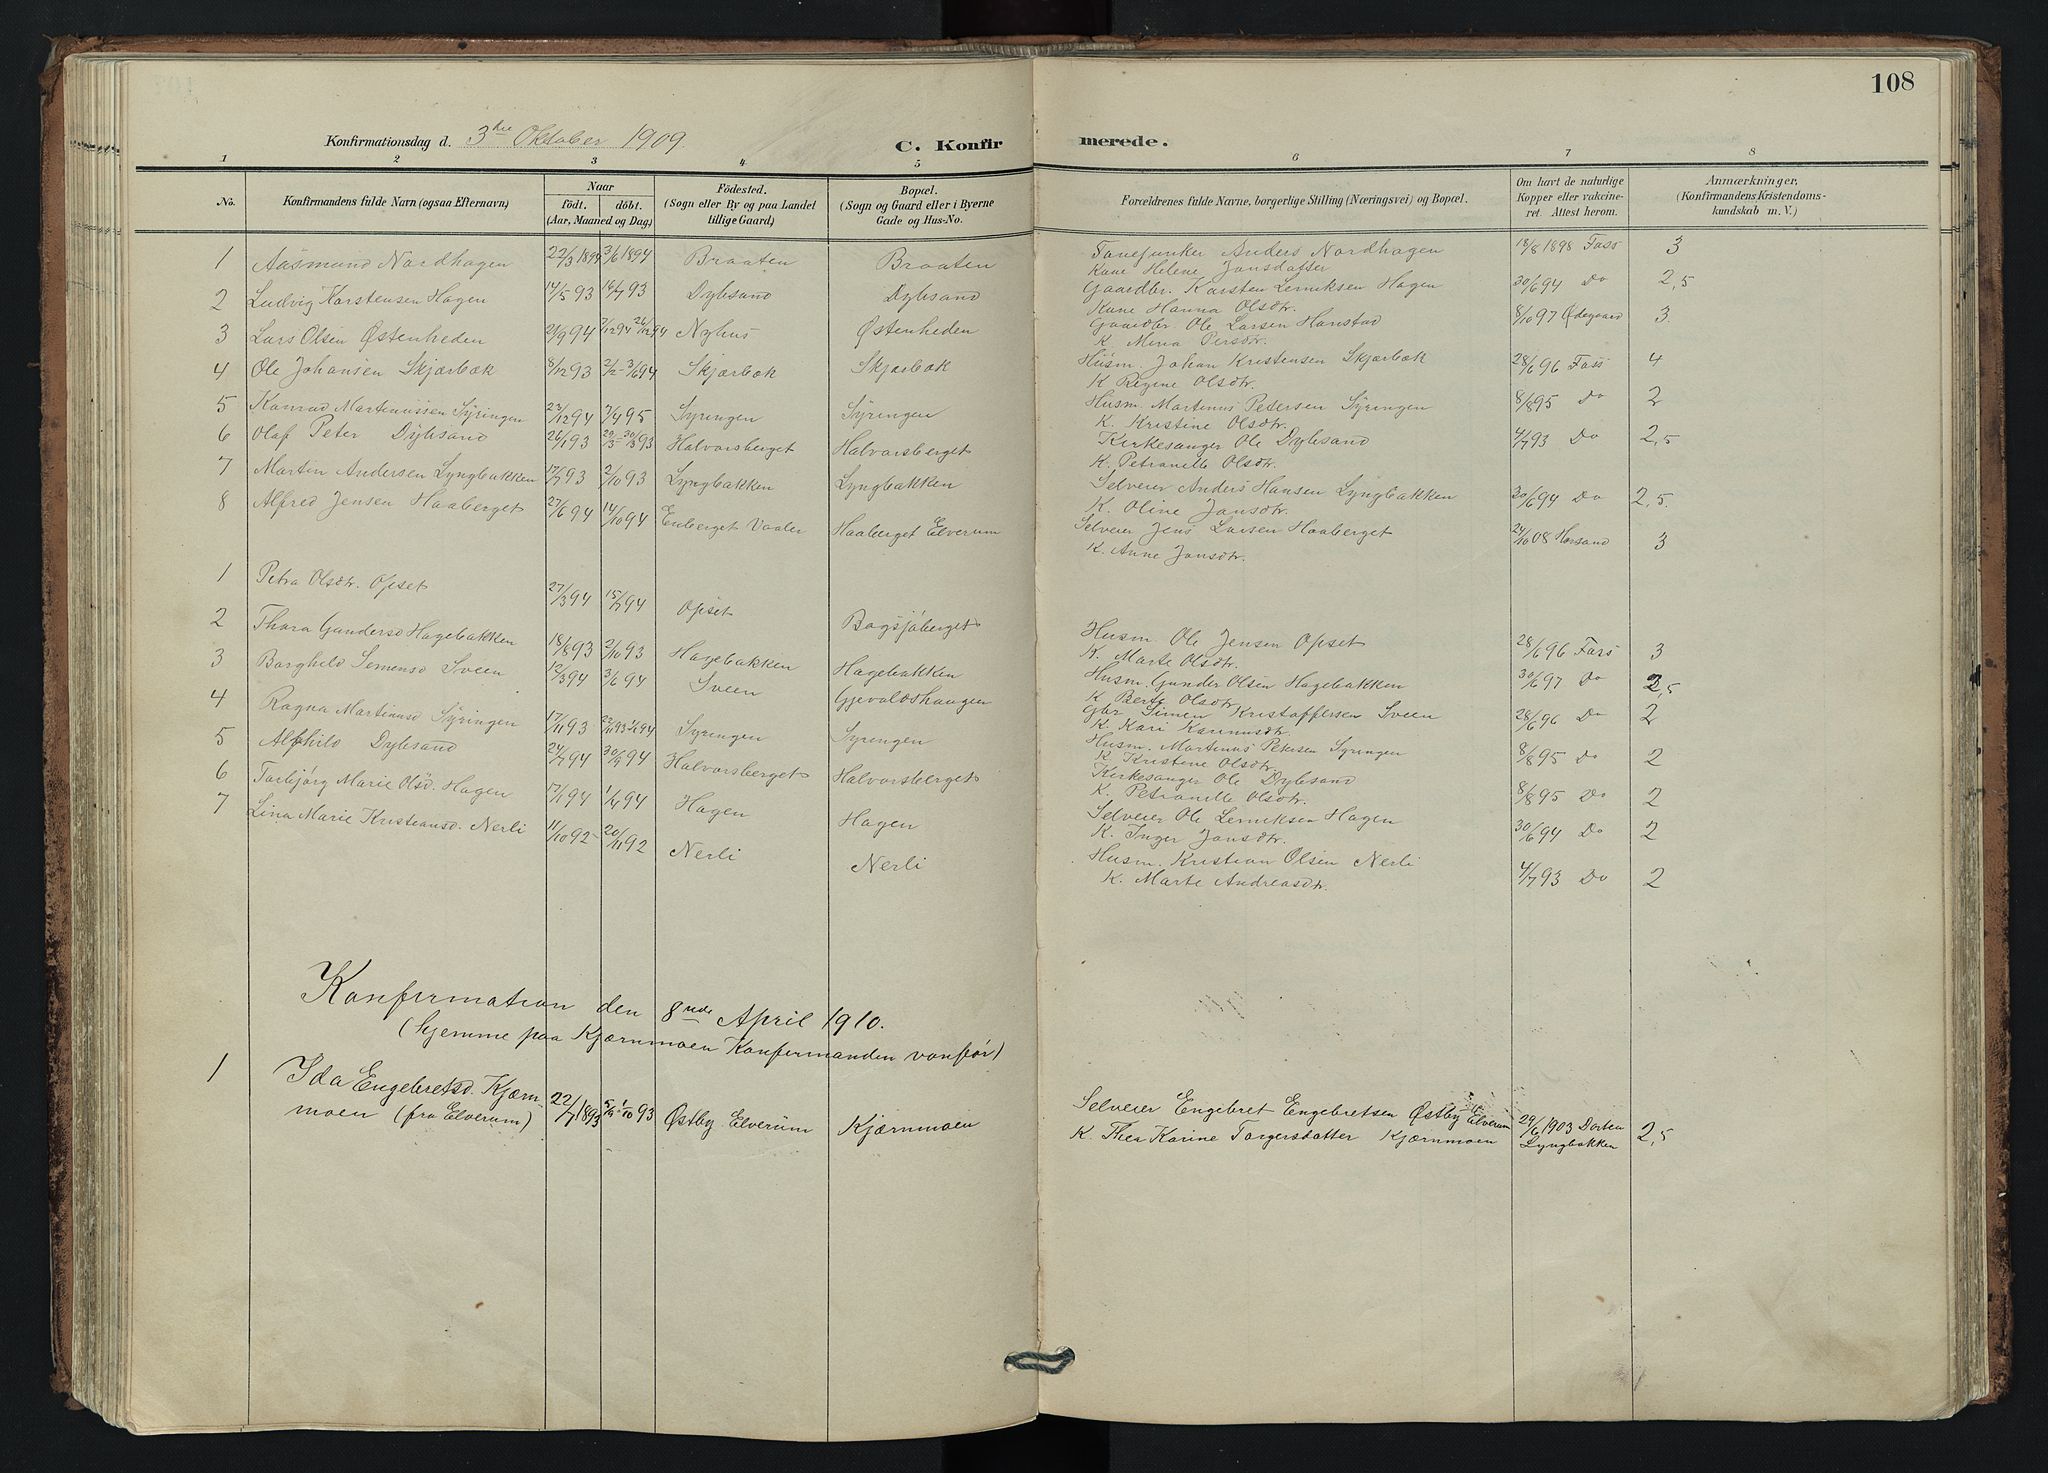 108
Konfirmationsdag d. 3die Oktober 1909
C. Konfirmerede.
1 2 3 4 5 6 7 8
No.
Konfirmandens fulde Navn (ogsaa Efternavn)
Naar
födt. döbt.
(Aar, Maaned og Dag)
Födested.
(Sogn eller By og paa Landet
tillige Gaard)
Bopæl.
(Sogn og Gaard eller i Byerne
Gade og Hus-No.
Forældrenes fulde Navne, borgerlige Stilling (Næringsvei) og Bopæl.
Om havt de naturlige
Kopper eller vakcine-
ret. Attest herom.
Anmærkninger.
(Konfirmandens Kristendoms-
kundskab m. V.)
1 Aasmund Nordhagen 22/3 1894 3/6 1894 Braaten Braaten Fanejunker Anders Nordhagen 18/8 1898 Foss 3
Kone Helene Jonsdatter
2 Ludvig Karstensen Hagen 14/5 93 16/7 93 Dylesand Dylesand Gaardbr. Karsten Lemiksen Hagen 30/6 94 Do 2,5
Kone Hanna Olsdtr.
3 Lars Olsen Østenheden 21/9 94 7/12 94 26/12 94 Nyhus Østenheden Gaardbr. Ole Larsen Hanstad 8/10 97 Ødegaard 3.
K. Mina Persdtr.
4 Ole Johansen Skjærbæk 8/12 93 2/2-3/6 94 Skjærbæk Skjærbæk Husm. Johan Kristensen Skjærbæk 28/6 96 Foss 4
K. Regine Olsdtr.
5 Konrad Martinussen Syringen 23/12 94 7/4 95 Syringen Syringen Husm. Martinus Petersen Syringen 8/8 95 Do 2
K. Kristine Olsdtr.
6 Olaf Peter Dylesand 26/1 93 20/3-30/3 93 Halvorsberget Halvorsberget Kirkesanger Ole Dylesand 4/7 93 Do 2,5
K. Petronelle Olsdtr.
7 Martin Andersen Lyngbakken 17/7 93 2/10 93 Lyngbakken Lyngbakken Selveier Anders Hansen Lyngbakken 30/6 94 Do 2,5.
K. Oline Jonsdtr.
8 Alfred Jensen Haaberget 27/6 94 14/10 94 Enberget Vaaler Haaberget Elverum Selveier Jens Larsen Haaberget 24/10 08 3
K. Anne Jonsdtr.
1 Petra Olsdtr. Opset 27/3 94 15/7 94 Opset Bogsjöberget Husm. Ole Jensen Opset 28/6 96 Foss 3
K. Marte Olsdtr.
2 Thora Gundersd Hagebakken 18/8 93 2/10 93 Hagebakken Hagebakken Husm. Gunder Olsen Hagebakken 30/6 97 Do 2,5
K. Berte Olsdtr.
3 Borghild Semensd Sveen 12/3 94 3/6 94 Sveen Gjevaldshaugen Gbr Simen Kristoffersen Sveen 28/6 96 Do 2
K. Kari Karinusdtr.
4 Ragna Martinusd Syringen 17/11 93 Syringen Syringen Husm. Martinus Petersen Syringen 8/8 95 Do 2
K Kristine Olsdtr.
5 Alfhild Dylesand 24/7 94 30/9 94 Halvorsberget Halvorsberget Kirkesanger Ole Dylesand 8/8 95 Do 2
K. Petronelle Olsdtr.
6 Torbjörg Marie Olsd. Hagen 17/1 94 Hagen Hagen Selveier Ole Lemiksen Hagen 30/6 94 Do 2
K. Inger Jonsdtr.
7 Lina Marie Kristiansd. Nerli 11/10 92 - 20/11 92 Nerli Nerli Husm. Kristian Olsen Nerli 4/7 93 Do 2
K. Marte Andreasdtr.
Konfirmation den 8nde April 1910.
(hjemme paa Kjærnmoen Konfirmanden vanför)
1 Ida Engebretsd. Kjærn- 22/7 1893 93 Østby Elverum Kjærnmoen Selveier Engebret Engebretsen Østby Elverum 29/6 1903 Dorten 2,5
moen (fra Elverum) K. Thea Karine Torgersdatter Kjærnmoen Lyngbakken